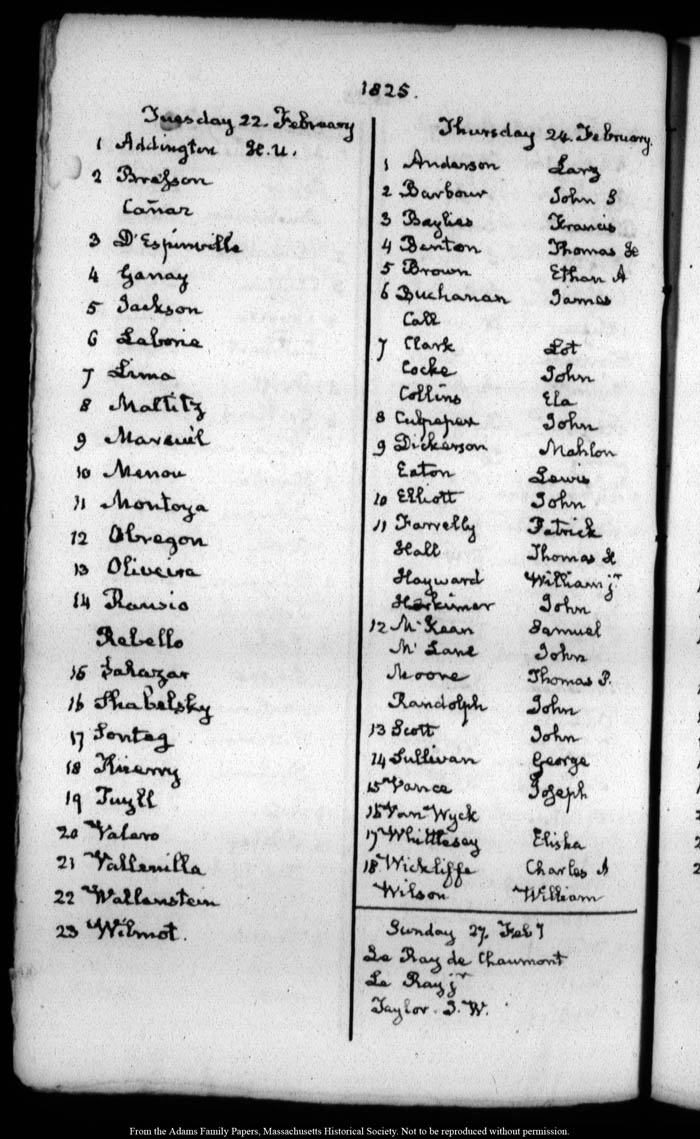 1825.
Tuesday 22. February
1 Addington H. U.
2 Bresson
Cañaz
3 D'Espinville
4 Ganay
5 Jackson
6 Laborie
7 Lima
8 Maltitz
9 Mareuil
10 Menou
11 Montoya
12 Obregon
13 Oliveira
14 Rausio
Rebello
15 Salazar
16 Shabelsky
17 Sontag
18 Thierry
19 Tuyll
20 Valero
21 Vallenilla
22 Wallenstein
23 Wilmot.
Thursday 24. February.
1 Anderson Larz
2 Barbour John S
3 Baylies Francis
4 Benton Thomas H
5 Brown Ethan A
6 Buchanan James
Call
7 Clark Lot
Cocke John
Collins Ela
8 Culpeper John
9 Dickerson Mahlon
Eaton Lewis
10 Elliott John
11 Farrelly Patrick
Hall Thomas H
Hayward William jr
Herkimer John
12 McKean Samuel
McLane John
Moore Thomas P.
Randolph John
13 Scott John
14 Sullivan George
15 Vance Joseph
15 Van Wyck
17 Whittlesey Elisha
18 Wickliffe Charles A
Wilson William
Sunday 27. Feby
Le Ray de Chaumont
Le Ray jr
Taylor. J. W.
From the Adams Family Papers, Massachusetts Historical Society. Not to be reproduced without permission.